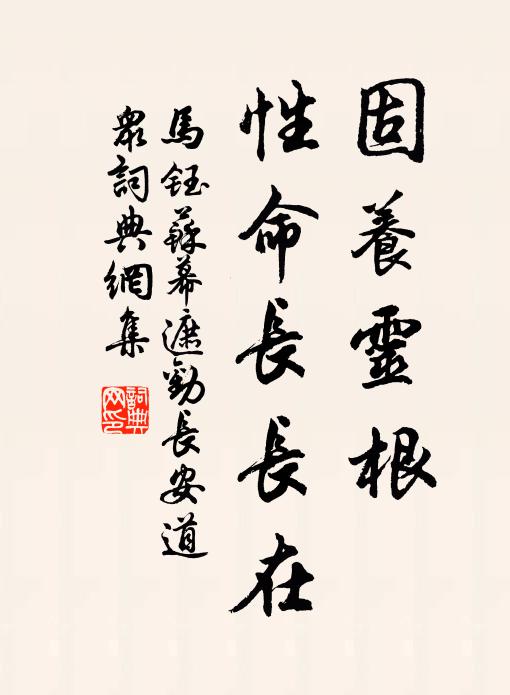 固養靈根
性命長長在
馬鈺蘇幕遮勸長安道
眾詞典網集
詞典
网印